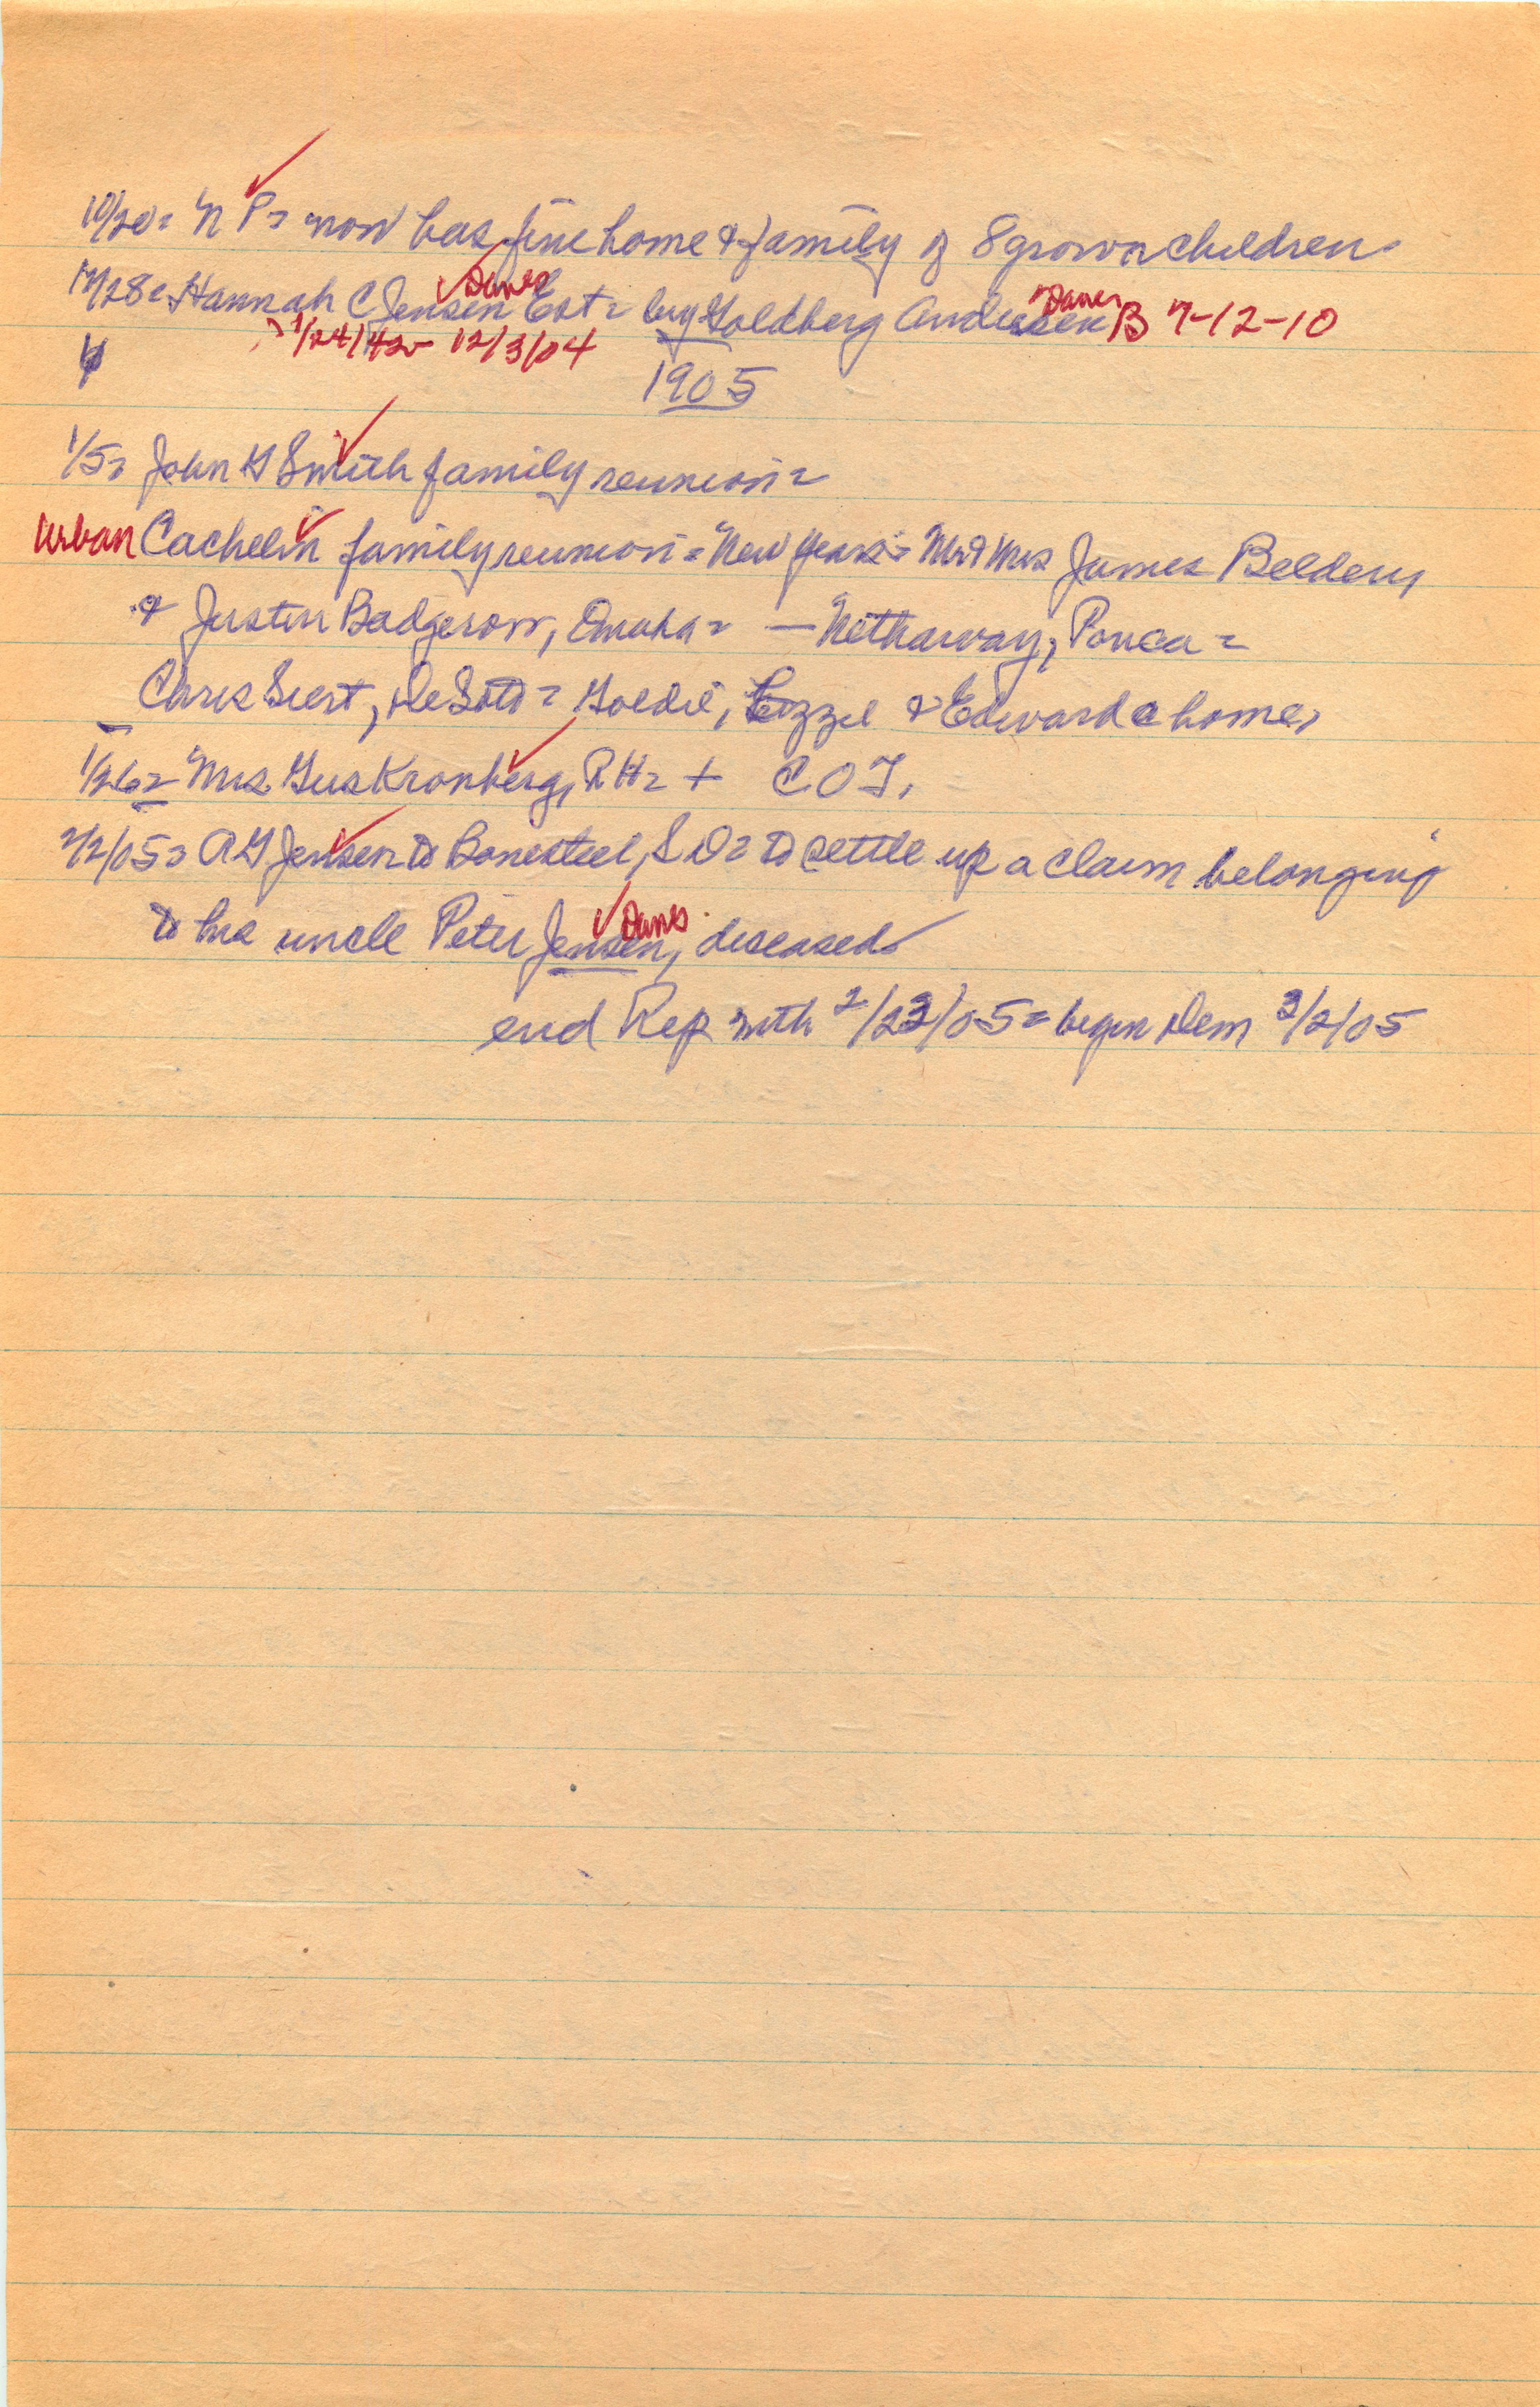 10/20= N P= now has fine home & family of 8 grown children.
Danes Danes
12/28= Hannah C Jensen Est= by Goldberg Andersen B 7-12-10
1/24/42- 12/3/04
1905
1/5= John G Smith family reunion=
Urban Cachelin family reunion= New Years= Mr & Mrs James Beldery
& Justin Badgerow, Omaha= — Nethaway, Ponca=
Chris Siert, DeSoto= Goldie, Lizzie & Edward @ home,
1/26= Mrs. Gus Kronberg, R H= + C O J,
2/2/05= A G Jensen to Bonesteel, S D= to settle up a claim belonging
Danes
to his uncle Peter Jensen, deceased
end Rep with 2/23/05= begin Dem 3/2/05